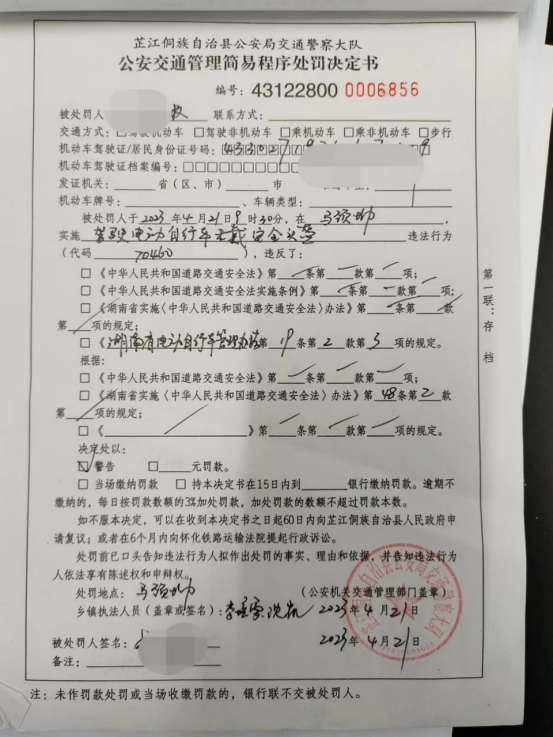 芷江侗族自治县公安局交通警察大队
公安交通管理简易程序处罚决定书
编号：43122800 0006856
被处罚人 联系方式：
交通方式：□驾驶机动车 □驾驶非机动车 □乘机动车 □乘非机动车 □步行
机动车驾驶证/居民身份证号码：
机动车驾驶证档案编号：□□□□□□□□
发证机关：____省（区、市）____市
机动车牌号：____、车辆类型：____
被处罚人于2023年4月21日9时30分，在
实施驾驶电动自行车未戴安全头盔违法行为
（代码70460），违反了：
□《中华人民共和国道路交通安全法》第 条第 款第 项；
□《中华人民共和国道路交通安全法实施条例》第 条第 款第 项；
□《湖南省实施〈中华人民共和国道路交通安全法〉办法》第 条第 款
第 项的规定；
□《湖南省电动自行车管理办法》第19条第2款第3项的规定。
根据：
□《中华人民共和国道路交通安全法》第 条第 款第 项；
□《湖南省实施〈中华人民共和国道路交通安全法〉办法》第48条第2款
第 项的规定；
□《 》第 条第 款第 项的规定。
决定处以：
☑警告 □____元罚款。
□当场缴纳罚款 □持本决定书在15日内到____银行缴纳罚款。逾期不
缴纳的，每日按罚款数额的3%加处罚款，加处罚款的数额不超过罚款本数。
如不服本决定，可以在收到本决定书之日起60日内向芷江侗族自治县人民政府申
请复议；或者在6个月内向怀化铁路运输法院提起行政诉讼。
处罚前已口头告知违法行为人拟作出处罚的事实、理由和依据，并告知违法行为
人依法享有陈述权和申辩权。
处罚地点： （公安机关交通管理部门盖章）
乡镇执法人员（盖章或签名）： 2023年4月21日
被处罚人签名： 2023年4月21日
备注：
注：未作罚款处罚或当场收缴罚款的，银行联不交被处罚人。
第一联：存档